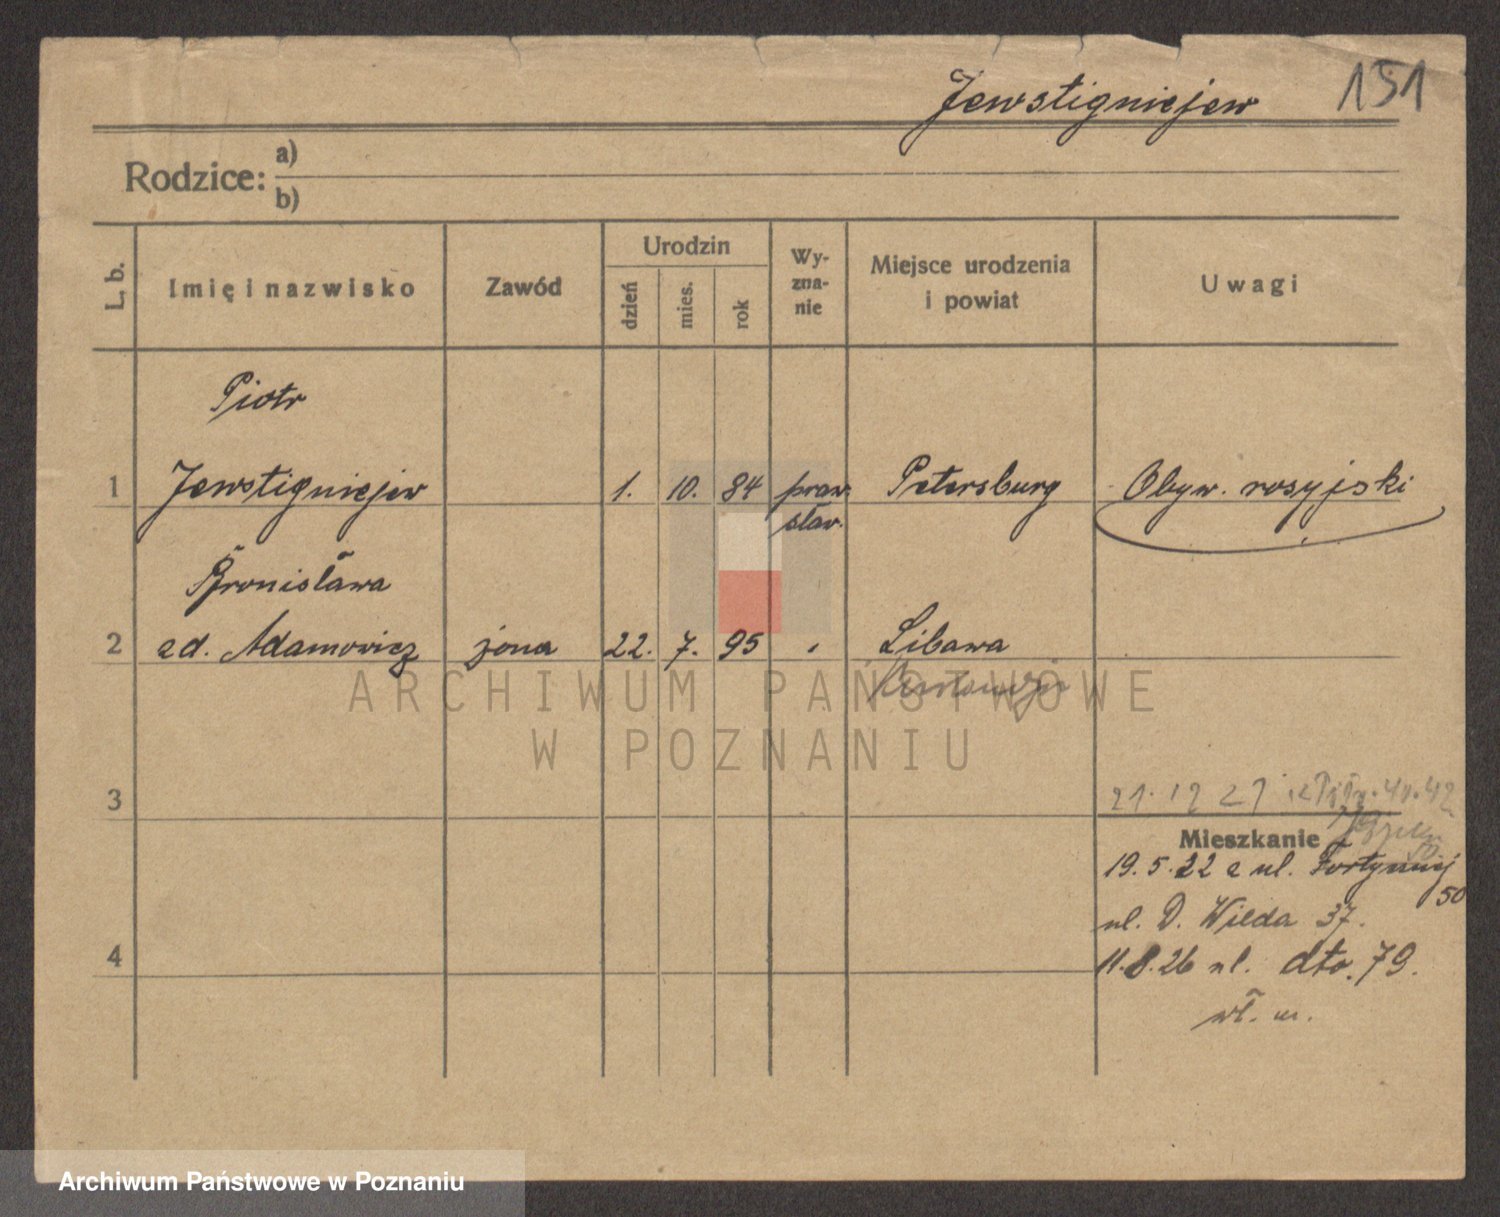 Jewstigniejew 151
Rodzice: a)
b)
L. b. Imię i nazwisko Zawód Urodzin dzień mies. rok Wy-zna-nie Miejsce urodzenia i powiat Uwagi
Piotr
1 Jewstigniejew 1. 10. 84 praw. Petersburg Obyw. rosyjski
slav.
Bronisława
2 zd. Adamowicz żona 22. 7. 95 " Libawa
3 21. 12 27
Mieszkanie
19. 5. 22 z ul. Fortecznej
50
ul. D. Wilda 37.
4 11. 8. 26 ul. dto. 79.
wł. m.
ARCHIWUM PAŃSTWOWE
W POZNANIU
Archiwum Państwowe w Poznaniu